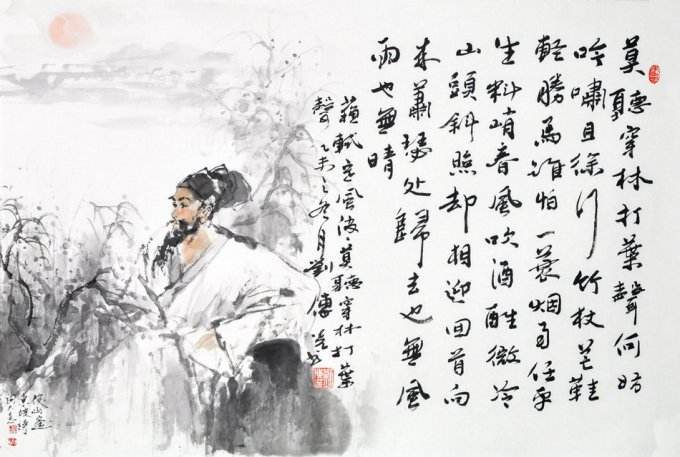 莫聽穿林打葉聲何妨
吟嘯且徐行竹杖芒鞋
輕勝馬誰怕一蓑烟雨任平
生料峭春風吹酒醒微冷
山頭斜照却相迎回首向
来蕭瑟处歸去也無風
雨也無晴
蘇軾定風波·莫聽穿林打葉
聲乙未之冬月劉傳